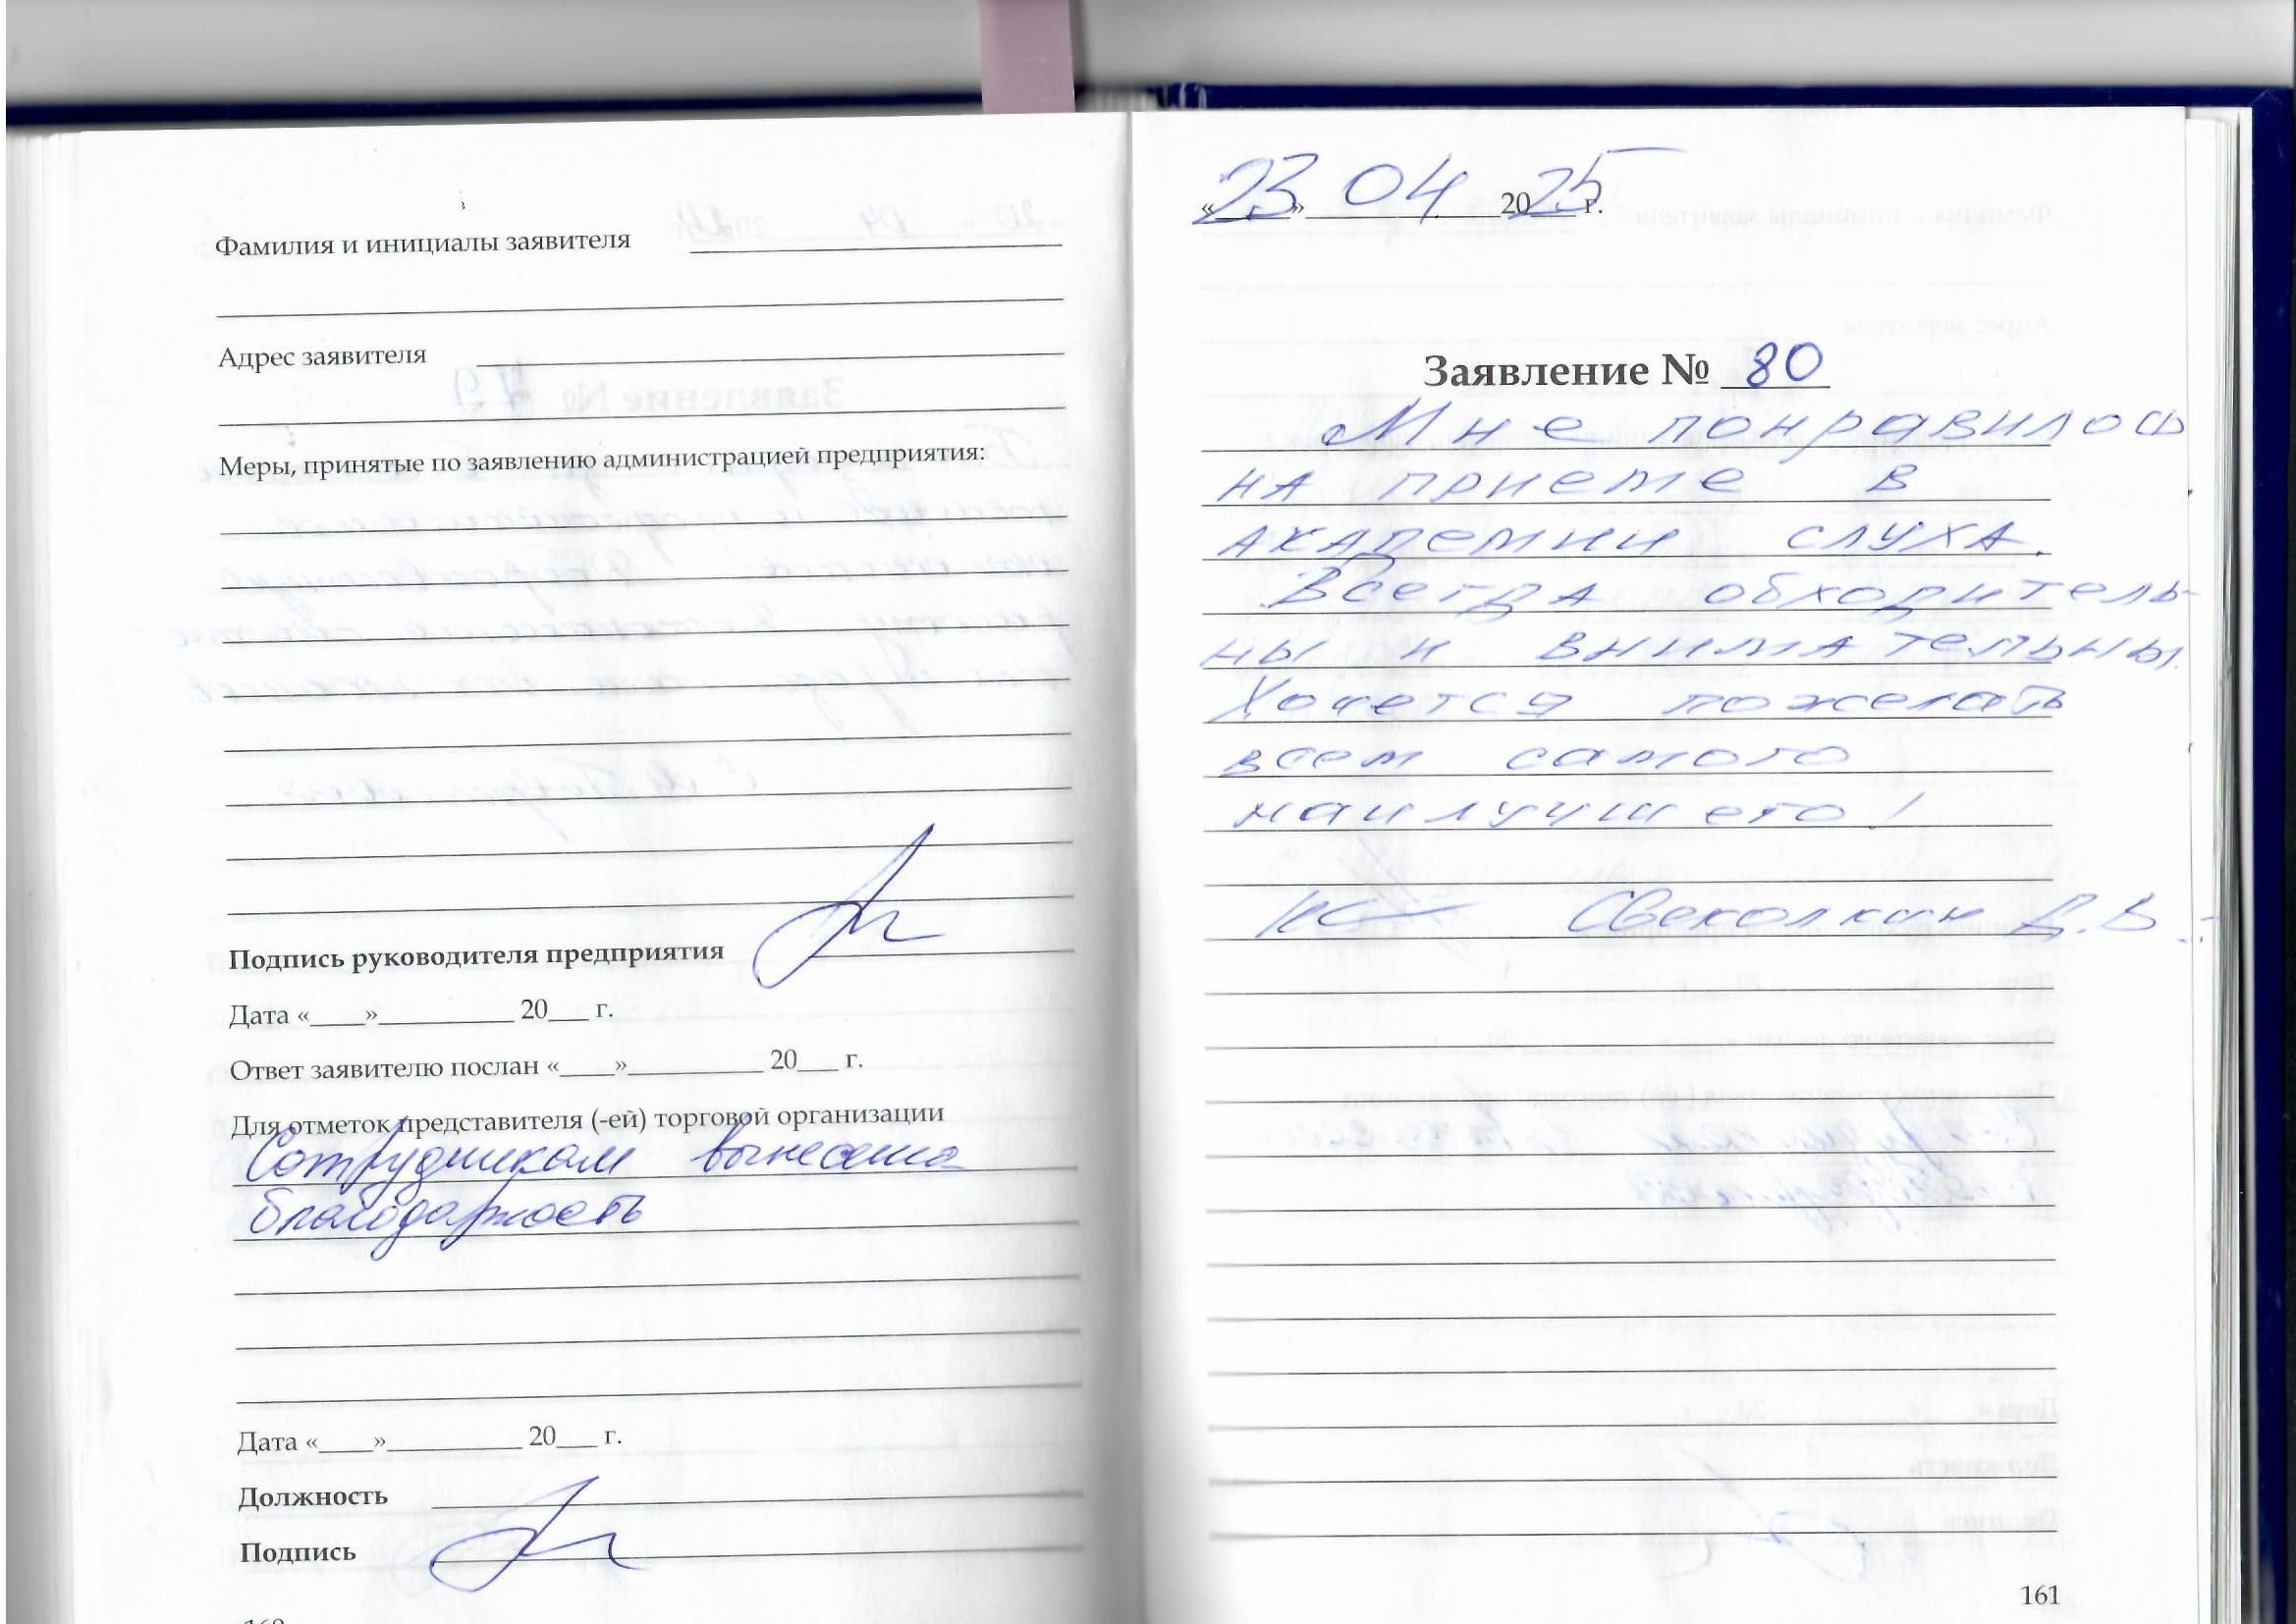 Фамилия и инициалы заявителя
Адрес заявителя
Меры, принятые по заявлению администрацией предприятия:
Подпись руководителя предприятия
Дата «____»__________ 20___ г.
Ответ заявителю послан «____»__________ 20___ г.
Для отметок представителя (-ей) торговой организации
Сотрудникам вынесена
благодарность
Дата «____»__________ 20___ г.
Должность
Подпись
«23» 04 2025 г.
Заявление № 80
Мне понравилось
на приеме в
академии слуха.
Всегда обходитель-
ны и внимательны.
Хочется пожелать
всем самого
наилучшего!
Свеколкин В.В.
161